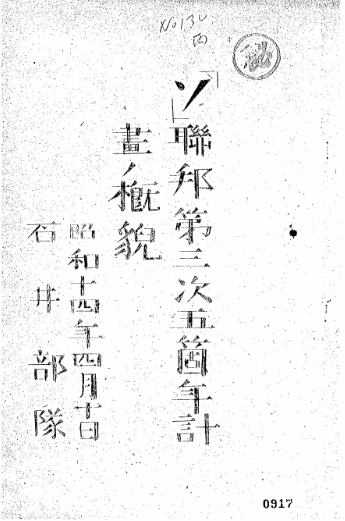 No130
秘
「ソ」聯邦第三次五箇年計
畫ノ概貌
昭和十四年四月十日
石井部隊
0917